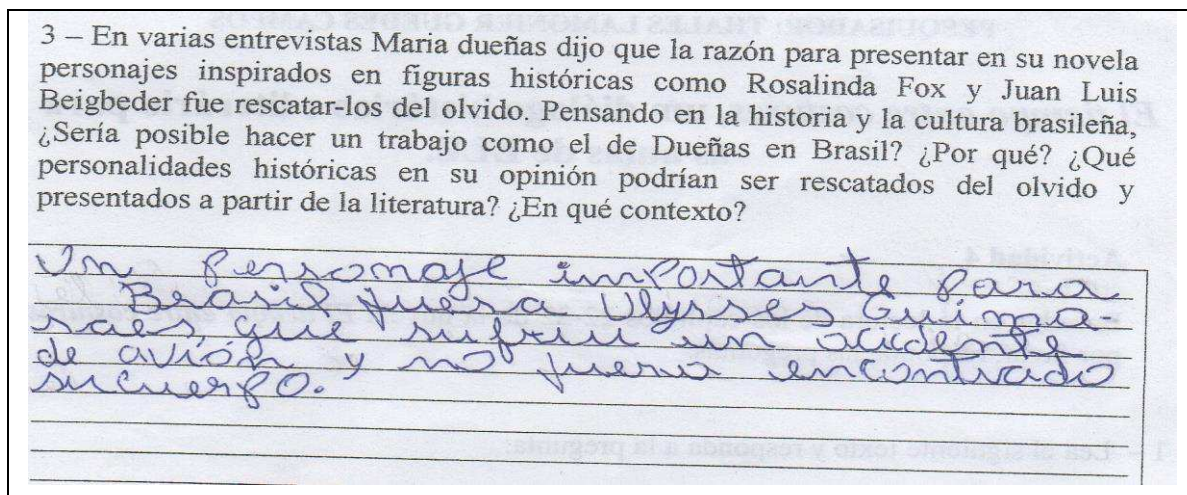 3 – En varias entrevistas Maria dueñas dijo que la razón para presentar en su novela
personajes inspirados en figuras históricas como Rosalinda Fox y Juan Luis
Beigbeder fue rescatar-los del olvido. Pensando en la historia y la cultura brasileña,
¿Sería posible hacer un trabajo como el de Dueñas en Brasil? ¿Por qué? ¿Qué
personalidades históricas en su opinión podrían ser rescatados del olvido y
presentados a partir de la literatura? ¿En qué contexto?
Un personaje importante para
Brasil fuera Ulysses Guima-
raes, que sufriu un acidente
de avión y no fuera encontrado
su cuerpo.
1 – Lea el siguiente texto y responda a la pregunta: